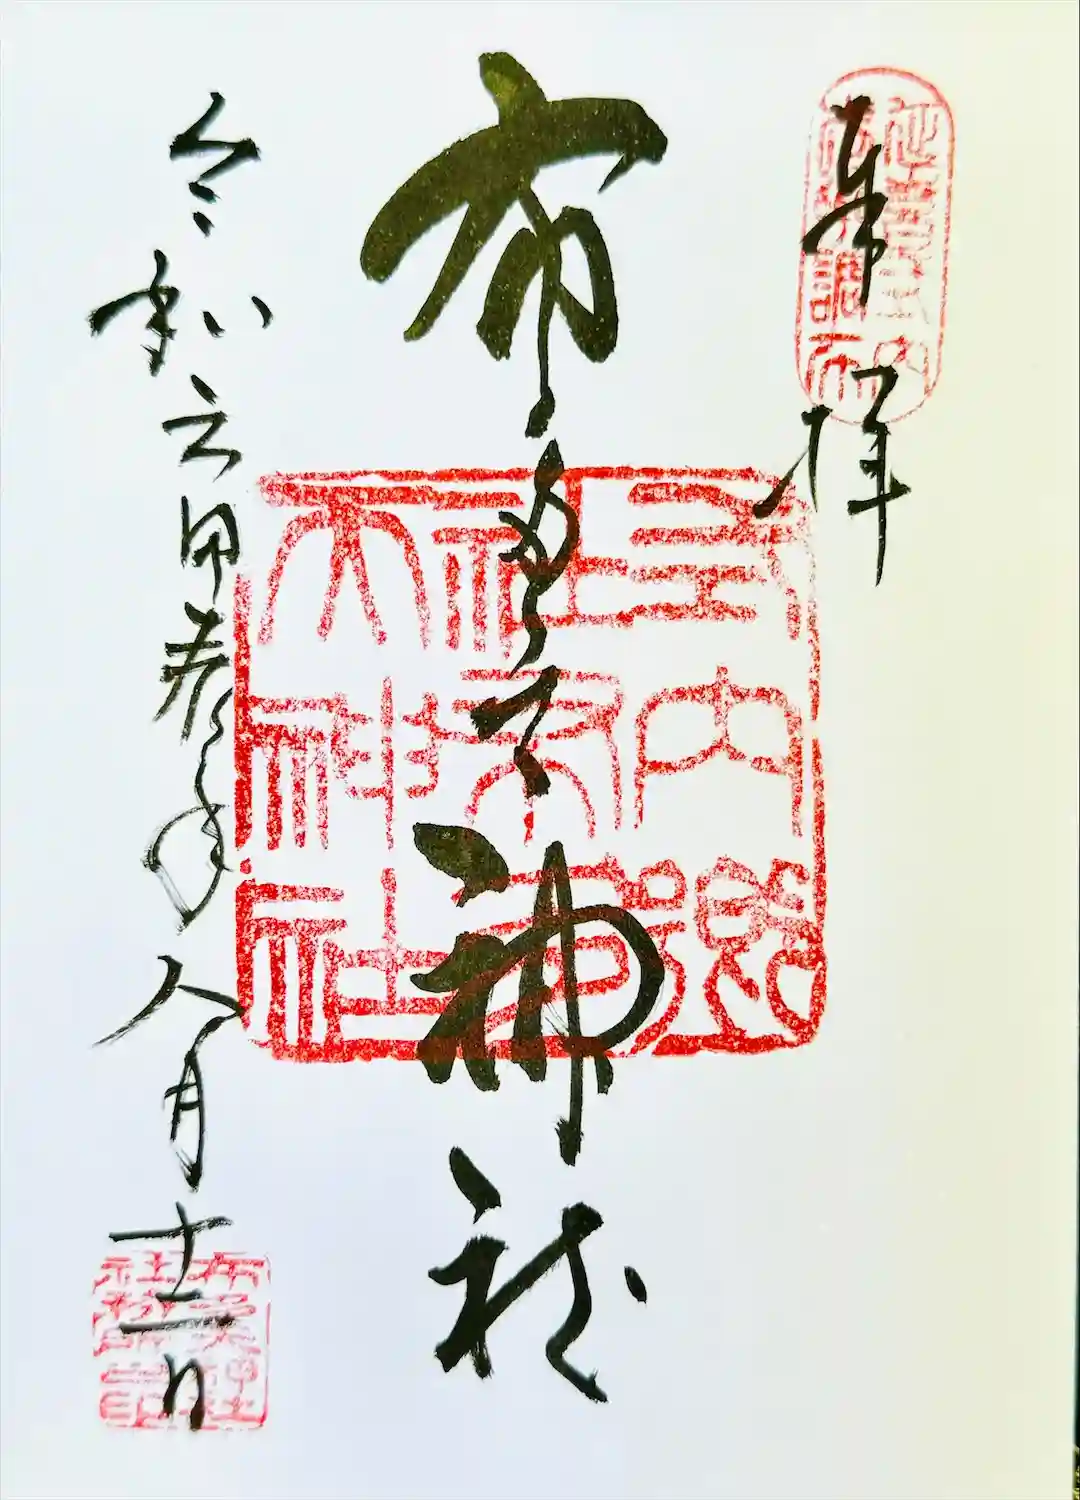 奉拝
延喜式内
調布
布多天神社
式内郷
社布多
天神社
令和六甲辰年八月十二日
布多天神社
社務所之印